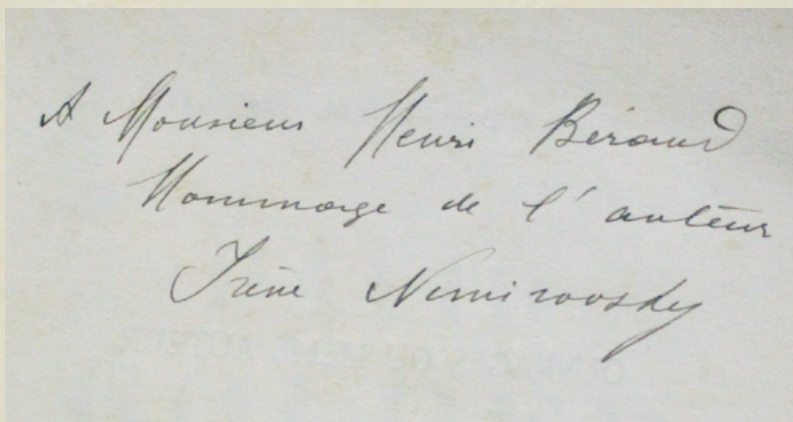 A Monsieur Henri Béraud
Hommage de l'auteur
Irène Nemirovsky